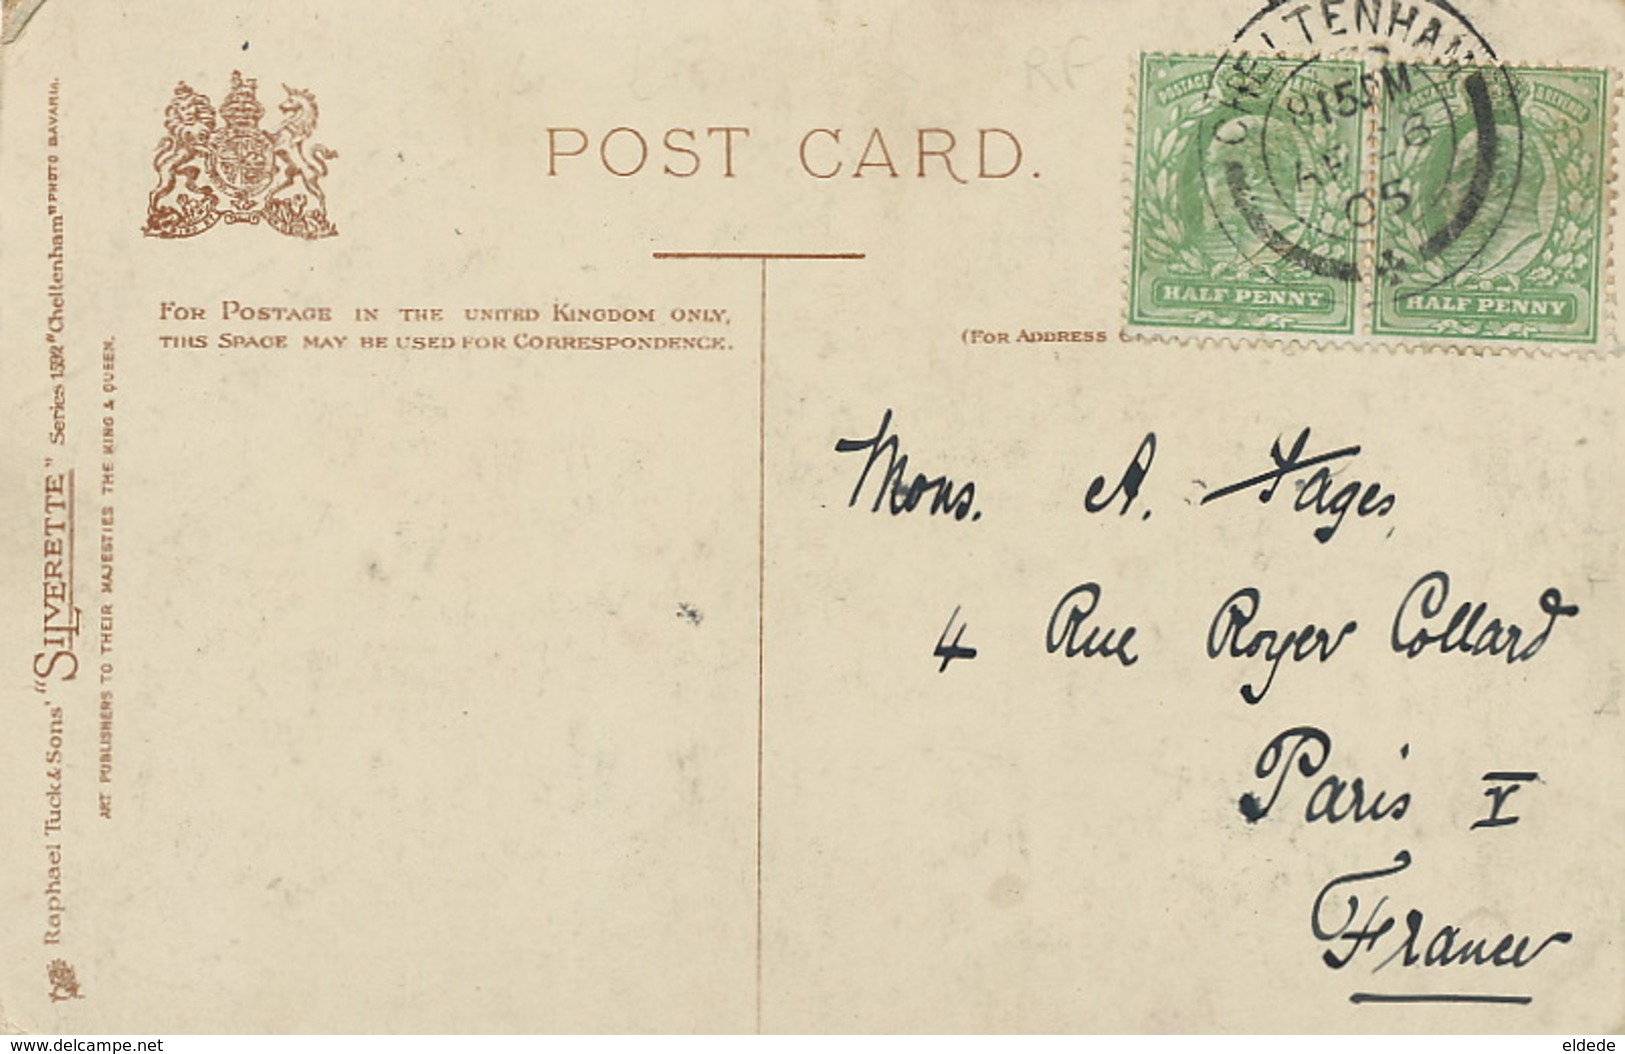 POST CARD.
FOR POSTAGE IN THE UNITED KINGDOM ONLY,
THIS SPACE MAY BE USED FOR CORRESPONDENCE.
(FOR ADDRESS
CHELTENHAM
815PM
05
HALF PENNY
HALF PENNY
Mons. A. Fages,
4 Rue Royer Collard
Paris V
France
Raphael Tuck & Sons' "SILVERETTE" Series 1592 "Cheltenham" PHOTO BAVARIA.
ART PUBLISHERS TO THEIR MAJESTIES THE KING & QUEEN.
RF
www.delcampe.net
eldede